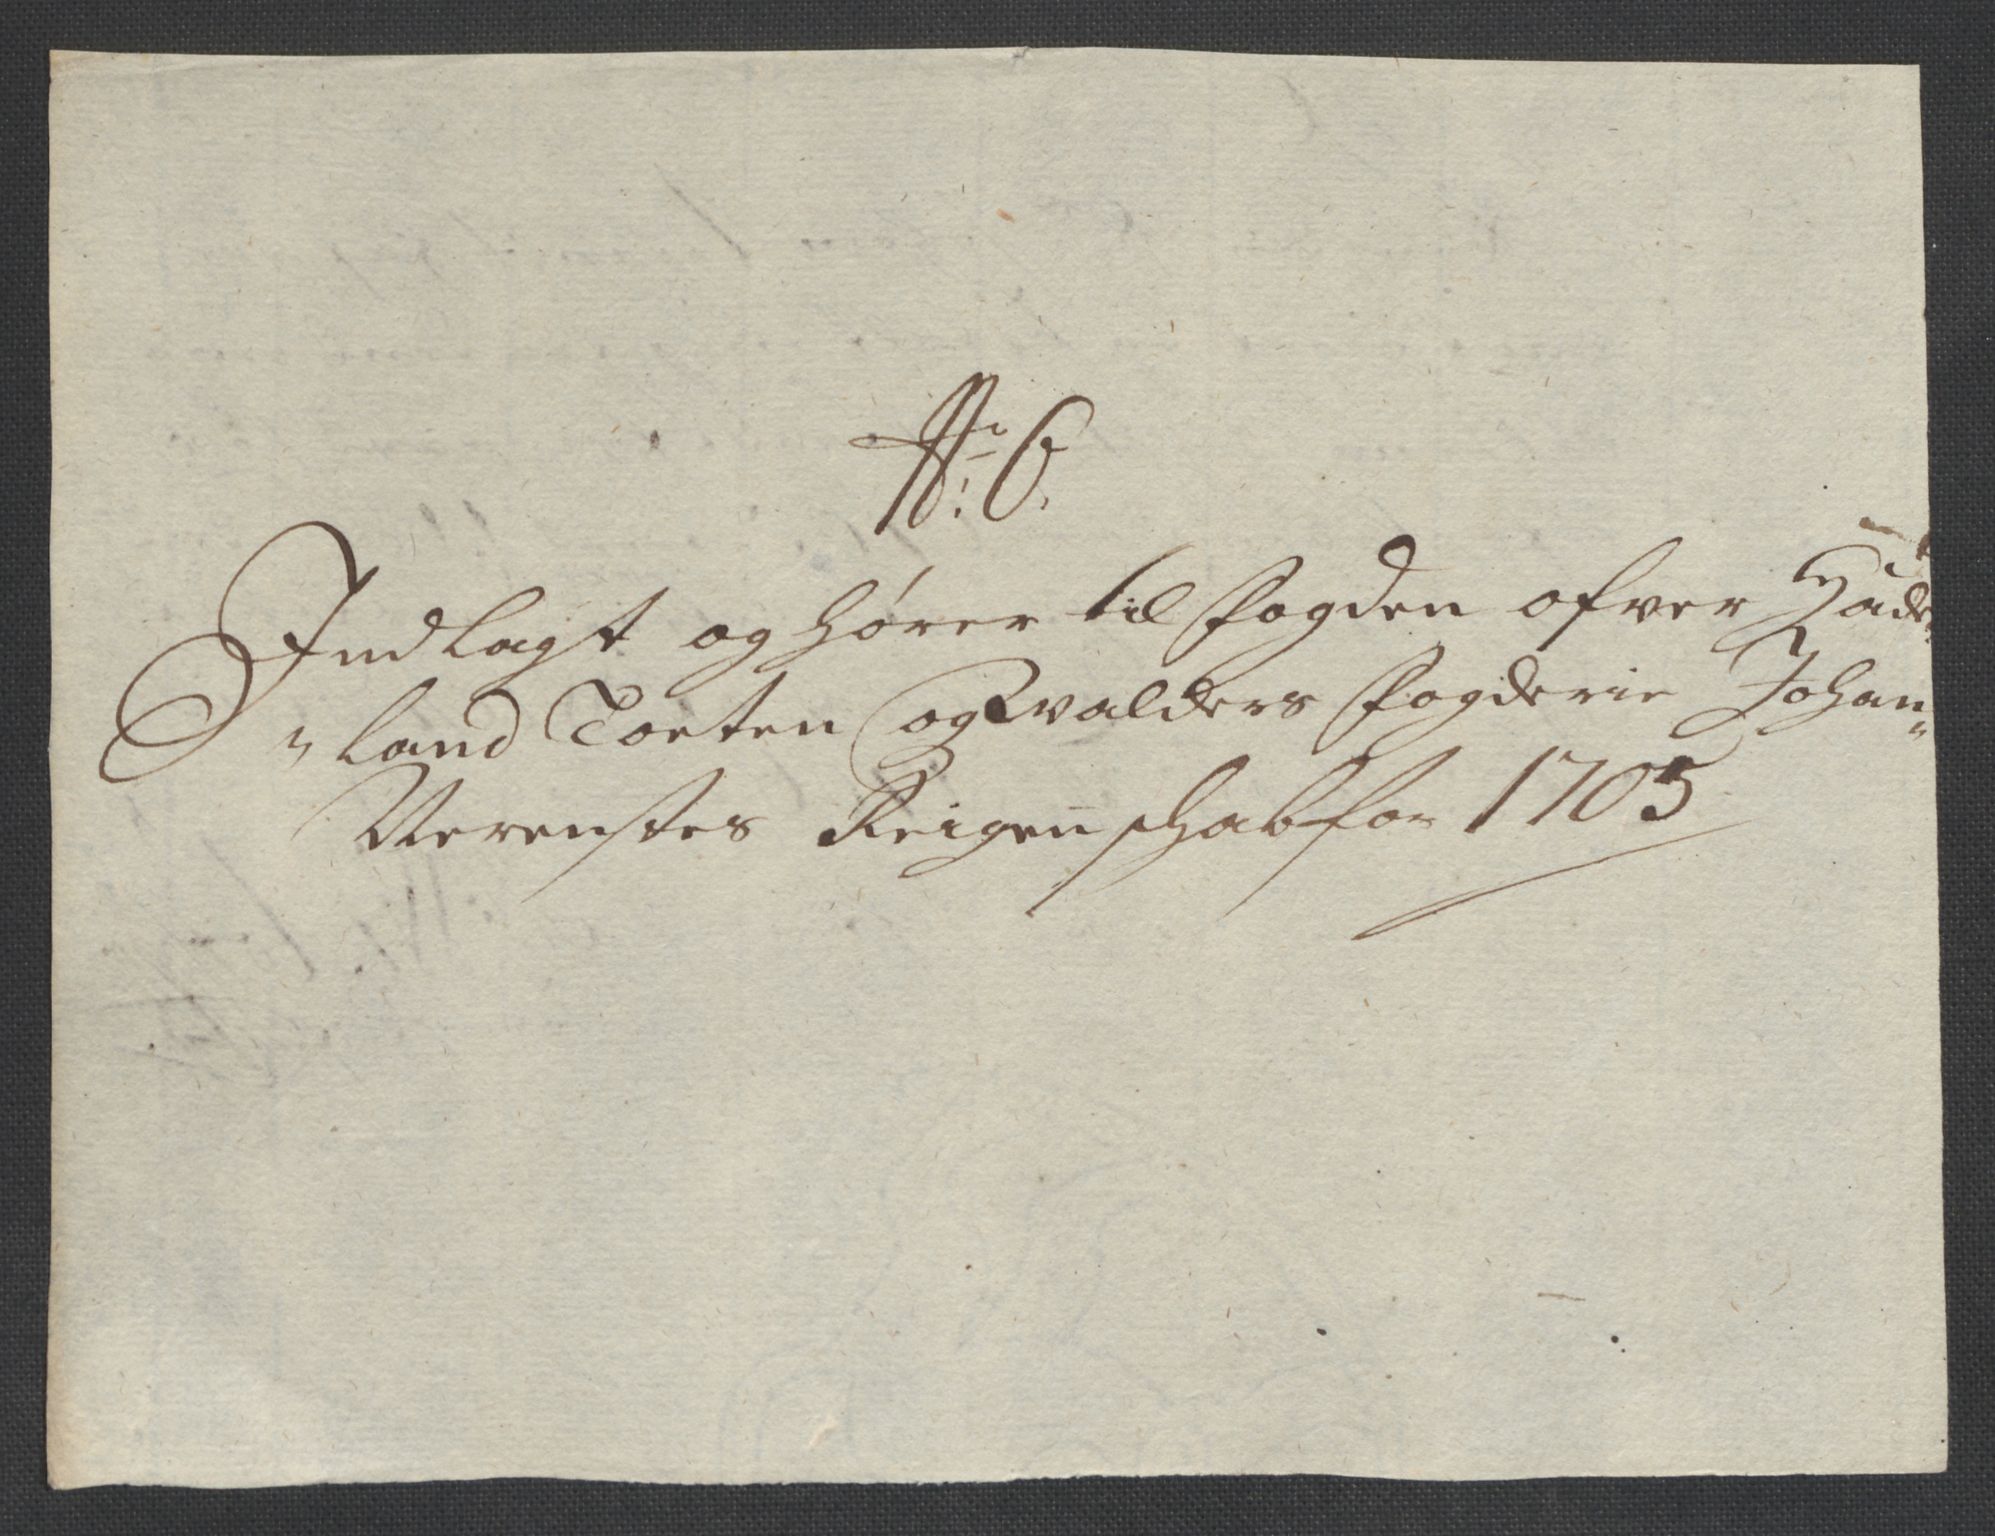 No: 6.
Indlagt og hører til fogden ofver Hade-
„land Toeten og Walders fogderie Johan„
Verenstes Reigenschab for 1705